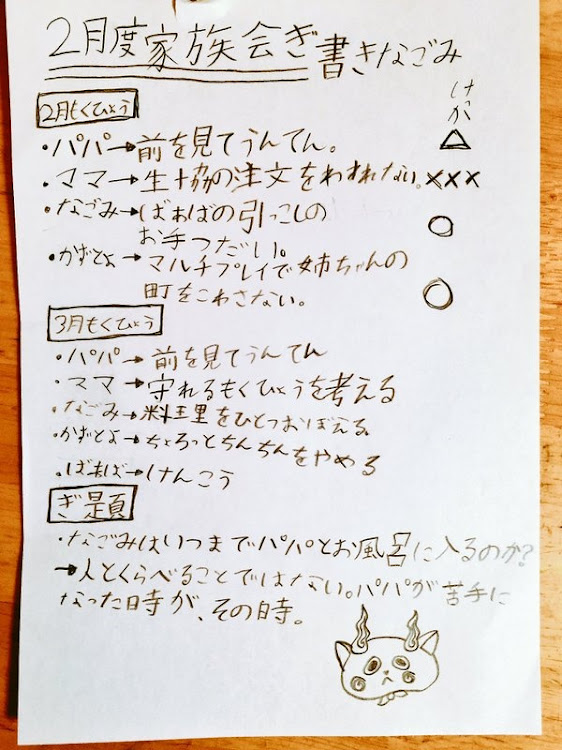 2月度家族会ぎ 書きなごみ
けか
2月もくひょう
・パパ→前を見てうんてん。 △
・ママ→生協の注文をわすれない。×××
・なごみ→ばぁばの引っこしの
お手つだい。 ○
・かずとよ→マルチプレイで姉ちゃんの
町をこわさない。 ○
3月もくひょう
・パパ→前を見てうんてん
・ママ→守れるもくひょうを考える
・なごみ→料理をひとつおぼえる
・かずとよ→ちょろっとちんちんをやめる
・ばぁば→けんこう
ぎ題
・なごみはいつまでパパとお風呂に入るのか?
→人とくらべることではない。パパが苦手に
なった時が、その時。